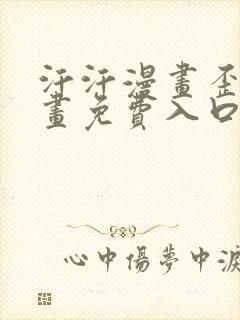 汗汗漫畫歪
畫免費入口
心中傷夢中淚